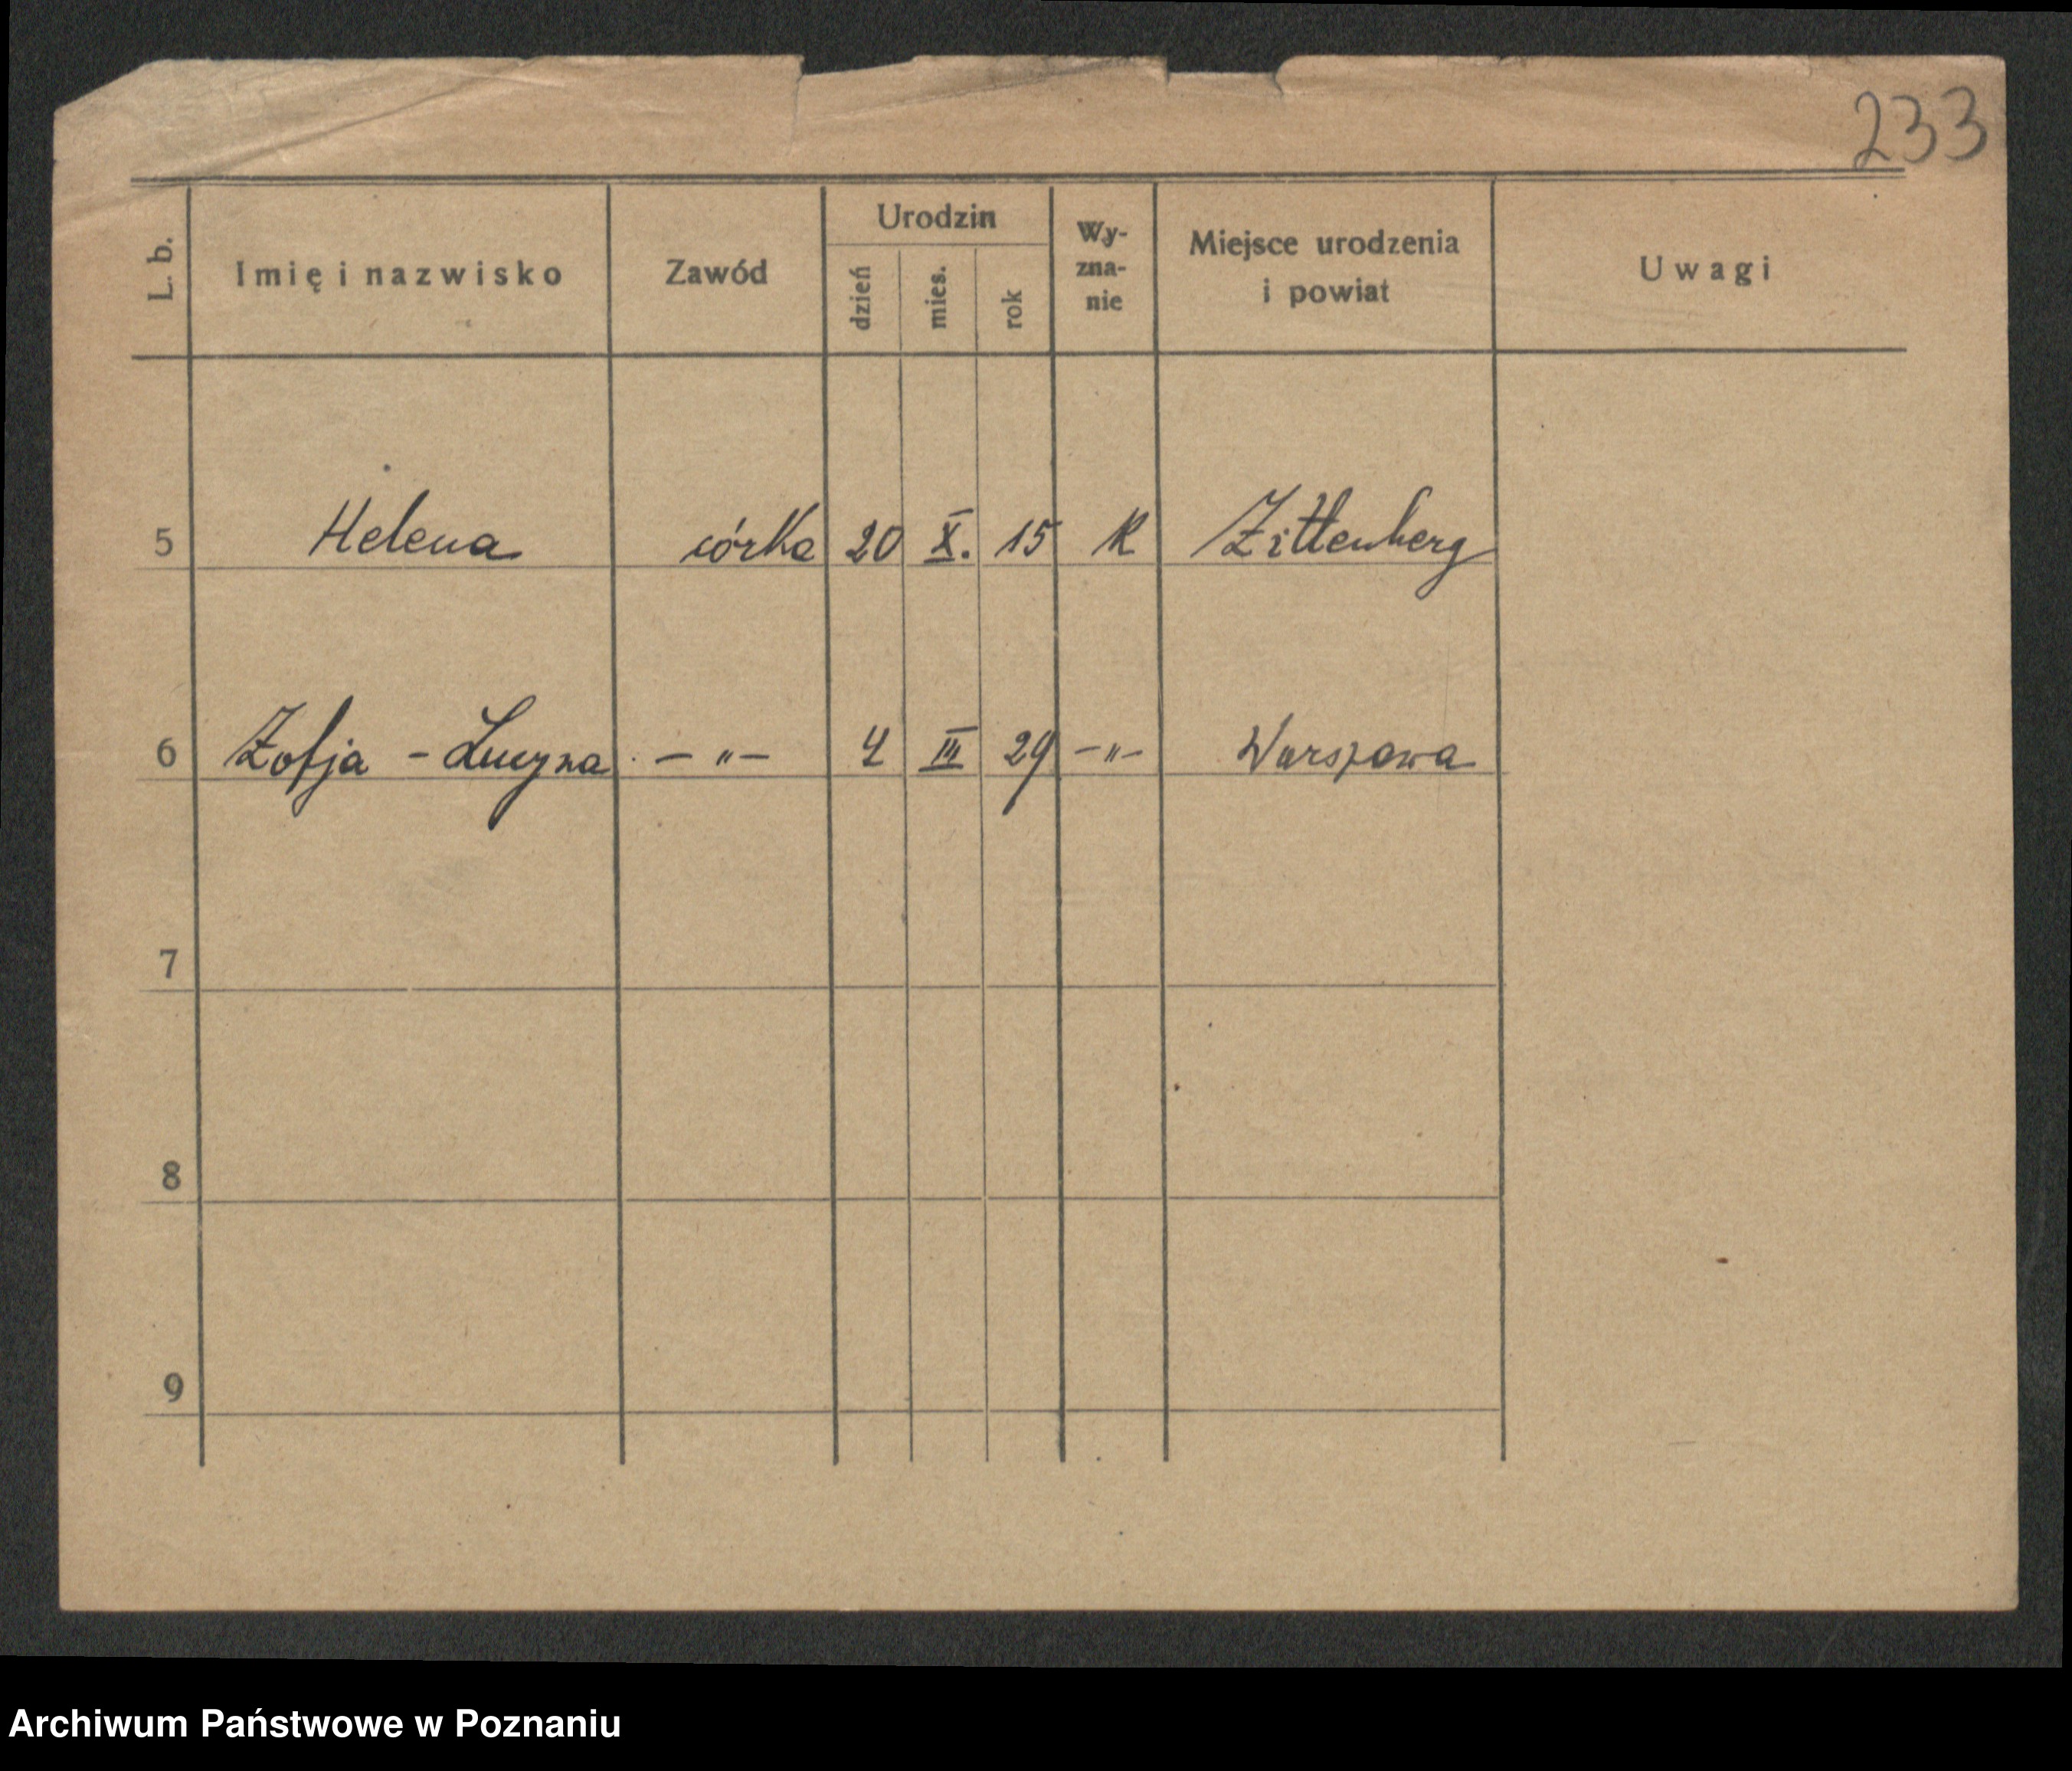 233
L. b. Imię i nazwisko Zawód Urodzin dzień mies. rok Wy-zna-nie Miejsce urodzenia i powiat Uwagi
5 Helena córka 20 X. 15 K Zittenberg
6 Zofja - Lucyna - „ - 4 III 29 - „ - Warszawa
7
8
9
Archiwum Państwowe w Poznaniu